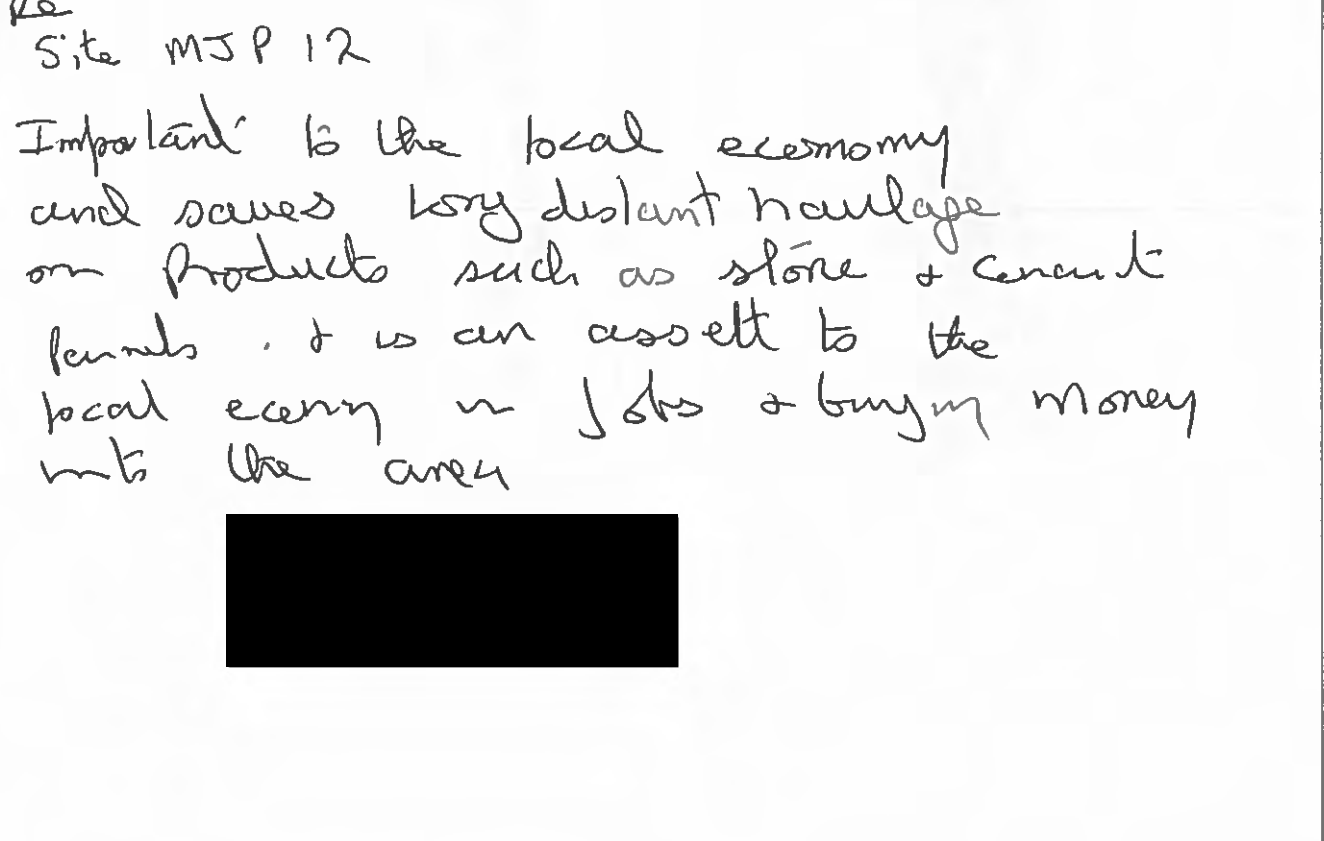 Re
Site MJP 12
Important to the local economy
and saves long distant haulage
on Products such as stone &
. & is an assett to the
local in Jobs & money
into the area